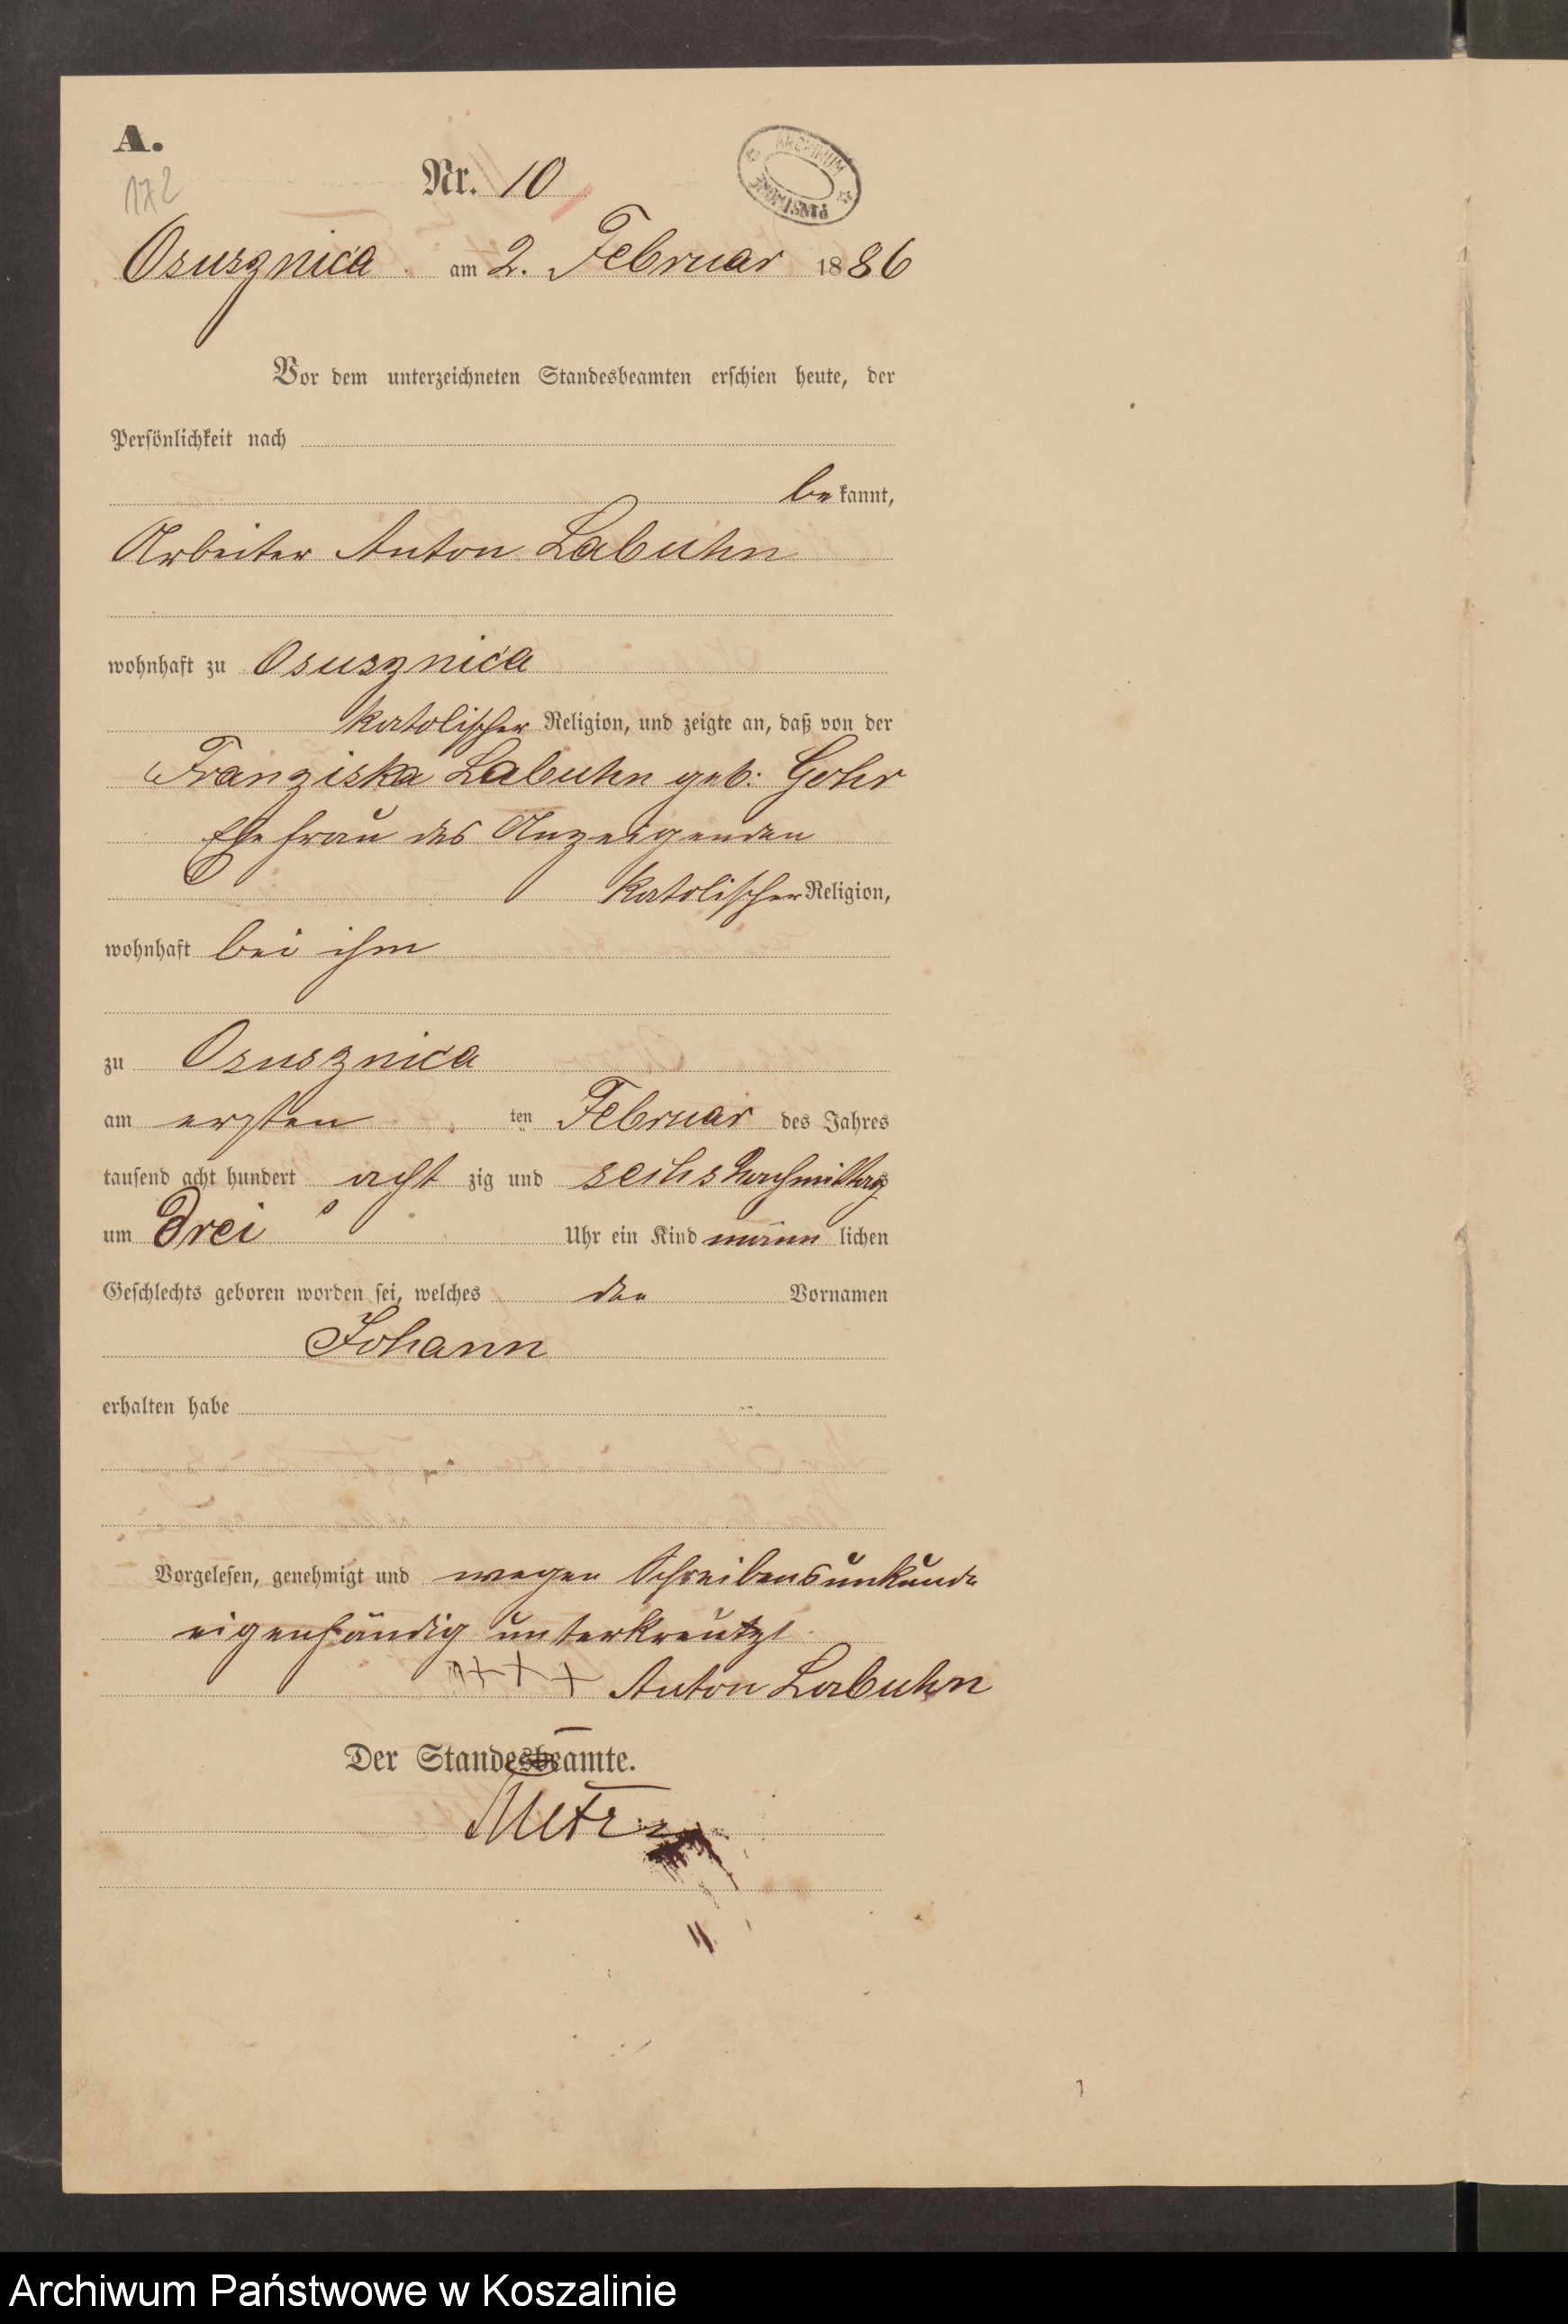 A.
172
Nr. 10
ARCHIWUM PAŃSTWOWE
Osusznica am 2. Februar 1886
Vor dem unterzeichneten Standesbeamten erschien heute, der
Persönlichkeit nach
be kannt,
Arbeiter Anton Labuhn
wohnhaft zu Osusznica
katolischer Religion, und zeigte an, daß von der
Franziska Labuhn geb: Gohr
Ehefrau des Anzeigenden
katolischer Religion,
wohnhaft bei ihm
zu Osusznica
am ersten ten Februar des Jahres
tausend acht hundert acht zig und sechs Nachmittag
um drei Uhr ein Kind männ lichen
Geschlechts geboren worden sei, welches den Vornamen
Johann
erhalten habe
Vorgelesen, genehmigt und wegen Schreibensunkunde
eigenhändig unterkreutzt
+++ Anton Labuhn
Der Standesbeamte.
Archiwum Państwowe w Koszalinie